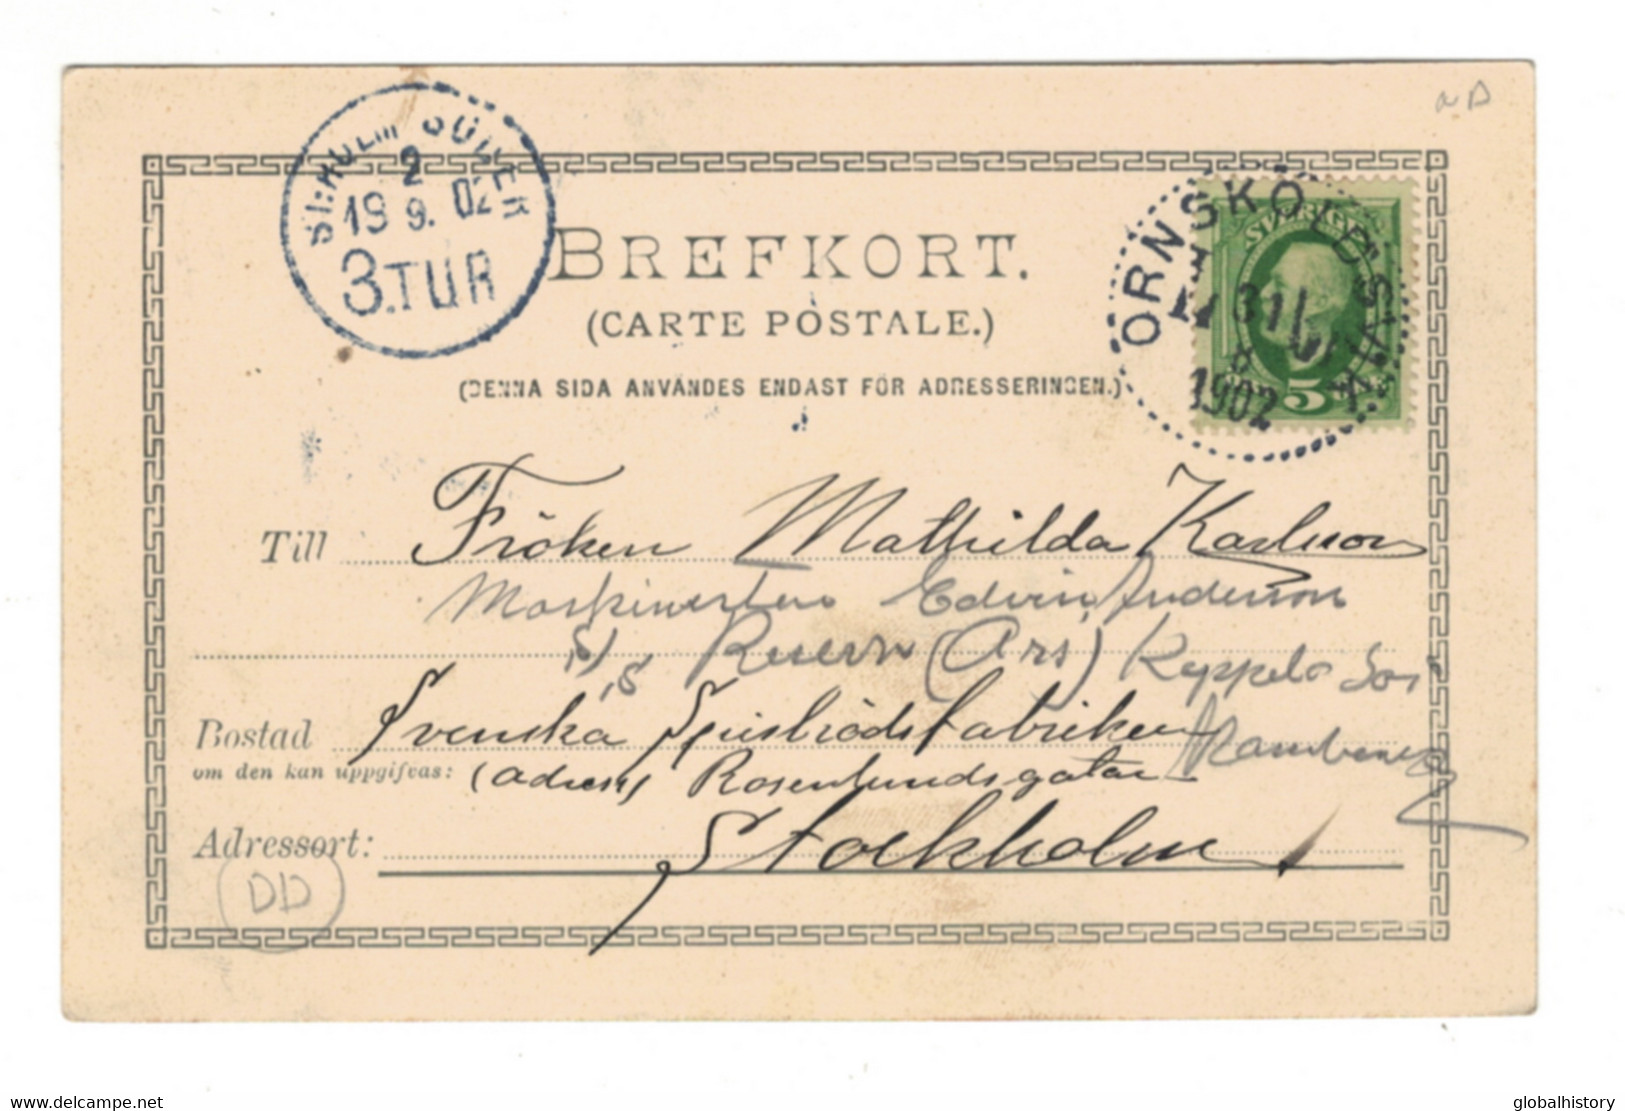 ST:HOLM SÖDER
2
19 9. 02
3.TUR
BREFKORT.
(CARTE POSTALE.)
(DENNA SIDA ANVÄNDES ENDAST FÖR ADRESSERINGEN.)
ÖRNSKÖLDSVIK
31
8
1902
SVERIGE
5
Till Fröken Mathilda Karlsson
Edvin Anderson
S/S (Ars)
Bostad Svenska Spisbrödsfabriken
om den kan uppgifvas: (adress Rosenlundsgatan
Adressort: Stockholm
DD
www.delcampe.net
globalhistory